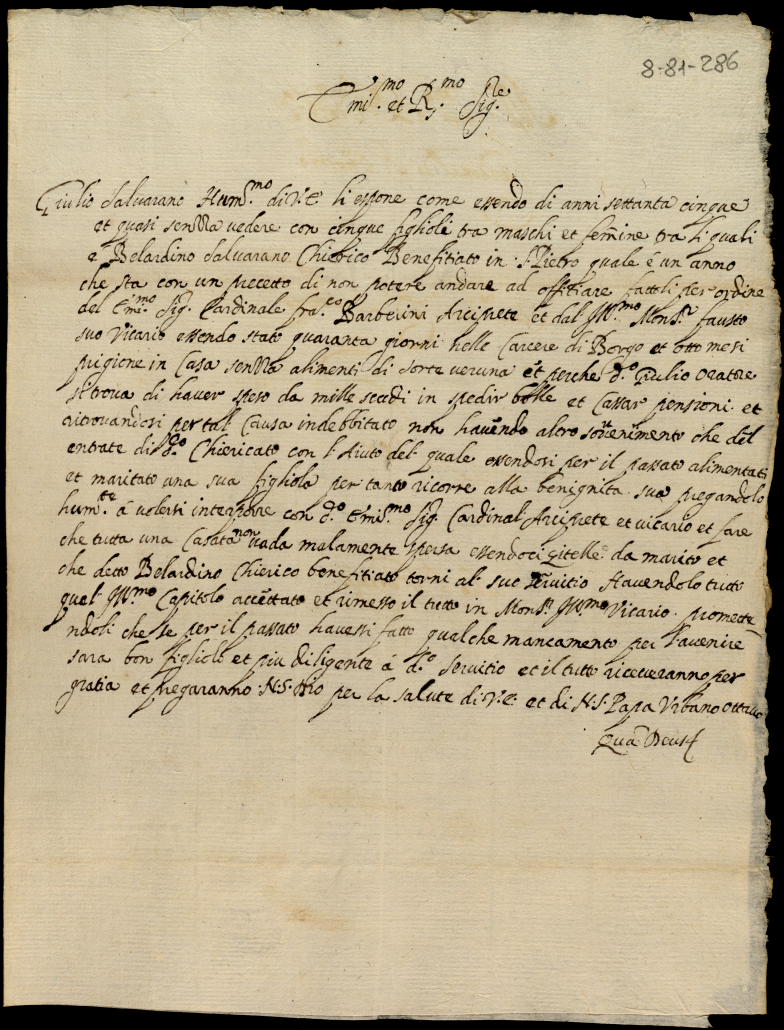 8-81-286
Emi.mo et R.mo Sig.re
Giulio Saluarano Hum.mo di V.E. li espone come essendo di anni settanta cinque
et quasi senza vedere con cinque figlioli tra maschi et femine tra li quali
è Belardino Saluarano Chierico Benefitiato in S. Pietro quale è un anno
che sta con un precetto di non potere andare ad offitiare fattoli per ordine
del Emi.mo Sig. Cardinale fra.co Barberini Arciprete et dal Ill.mo Mons.r fausto
suo Vicario essendo stato quaranta giorni nelle Carcere di Borgo et otto mesi
prigione in Casa senza alimenti di sorte veruna et perche d.o Giulio Oratore
si trova di haver speso da mille scudi in spedir bolle et Cassar pensioni et
ritrovandosi per tal Causa indebbitato non havendo altro sovenimento che del
entrate di d.o Chiericato con l'Aiuto del quale essendosi per il passato alimentati
et maritato una sua figliola per tanto ricorre alla benignita sua pregandolo
hum.te à volersi interporre con d.o Emi.mo Sig. Cardinal Arciprete et vicario et fare
che tutta una Casata non vada malamente spersa essendoci zitelle da marito et
che detto Belardino Chierico benefitiato torni al suo servitio Havendolo tutto
quel Ill.mo Capitolo accettato et rimesso il tutto in Mons.r Ill.mo Vicario promette
ndoli che se per il passato havessi fatto qualche mancamento per l'avenire
sara bon figliolo et piu diligente à d.o Servitio et il tutto riceveranno per
gratia et pregaranno N.S. Dio per la salute di V.E. et di N.S. Papa Vrbano Ottavo
Quã Deus